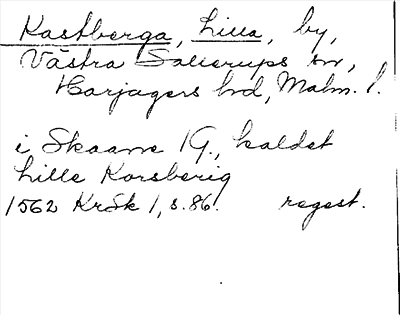 Kastberga, Lilla, by,
Västra Sallerups sn,
Harjagers hd, Malm. l.
i Skaane 1 G., kaldet
Lille Korsberig
1562 KrSk 1, s. 86. regest.